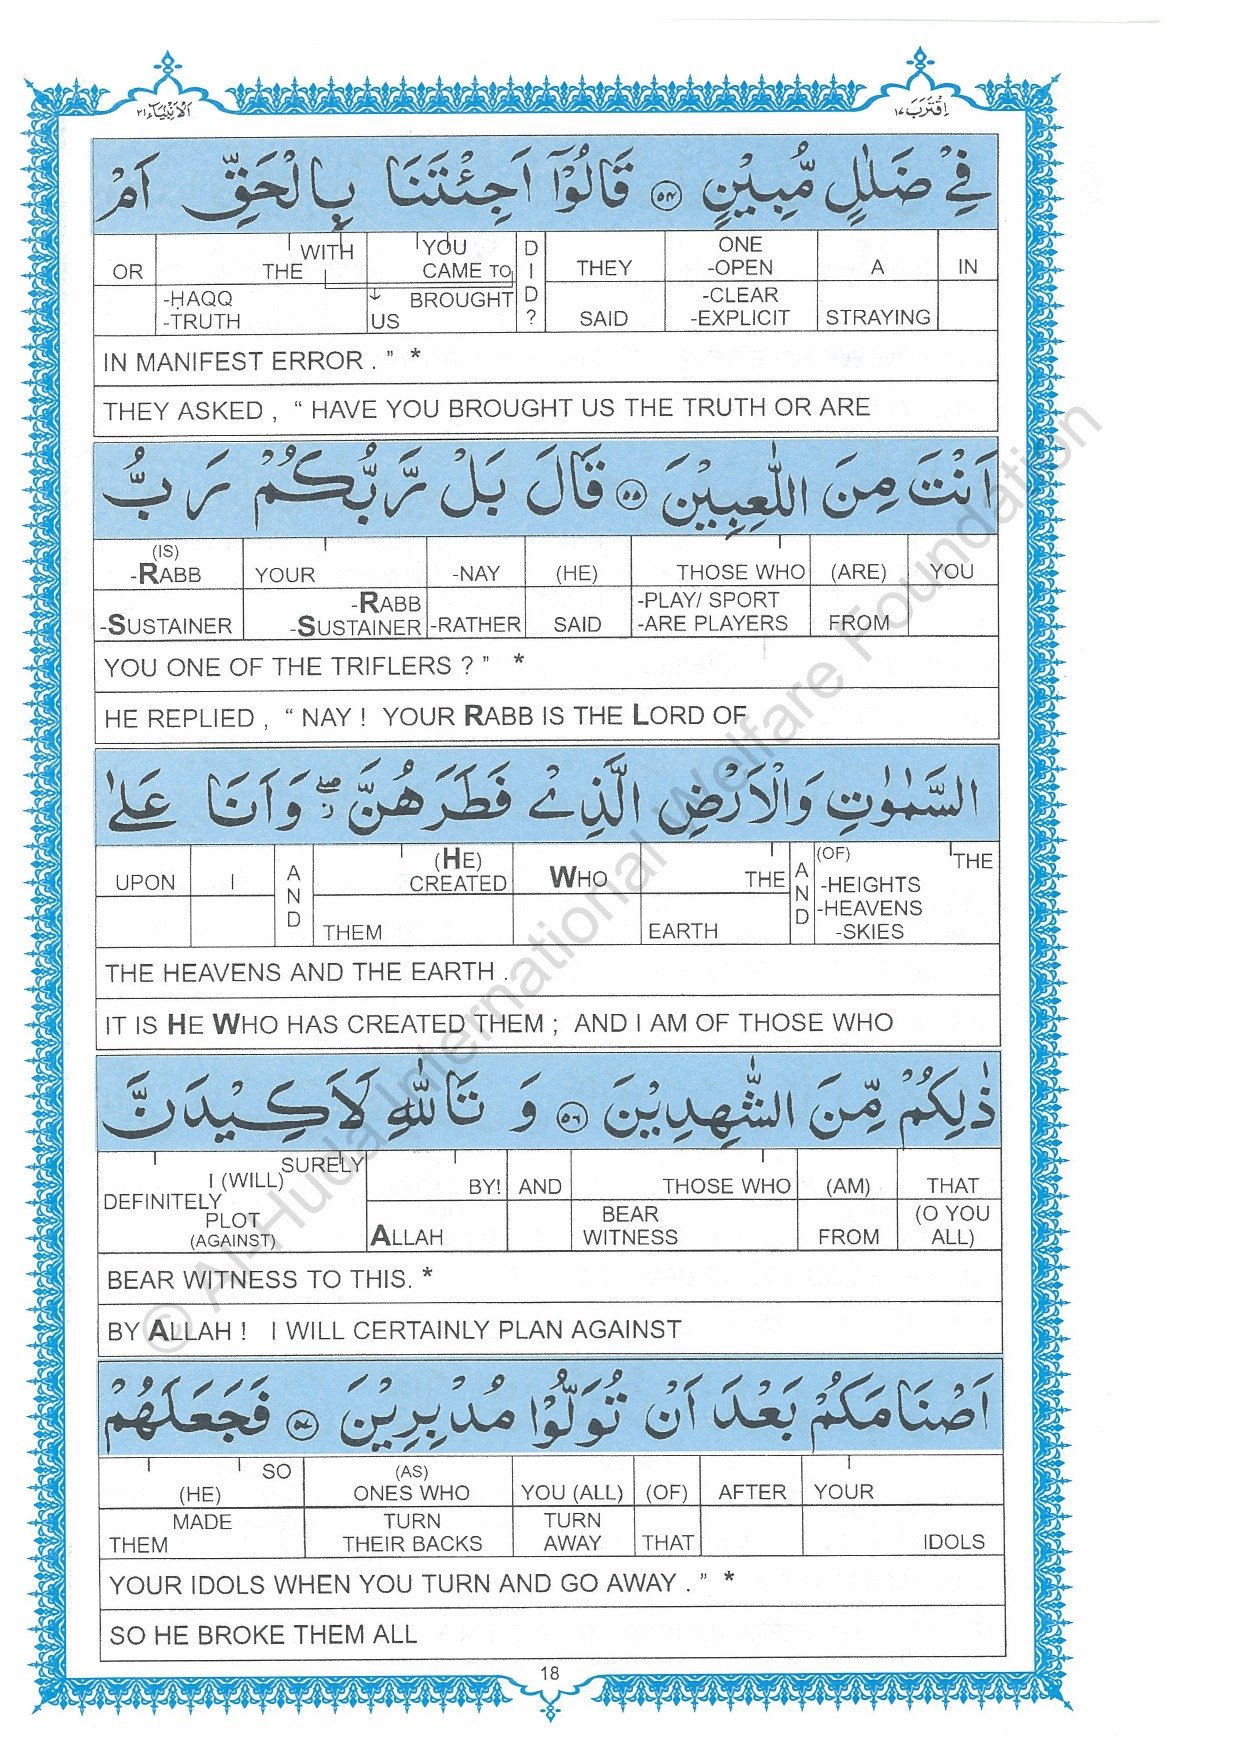 اَلْاَنْۢبِيَآء٢١
اِقْتَرَبَ ١٧
فِيْ ضَلٰلٍ مُّبِيْنٍ ٥٤ قَالُوْٓا اَجِئْتَنَا بِالْحَقِّ اَمْ
OR THE WITH YOU CAME TO DID? THEY ONE -OPEN A IN
-HAQQ -TRUTH US BROUGHT SAID -CLEAR -EXPLICIT STRAYING
IN MANIFEST ERROR . ” *
THEY ASKED , “ HAVE YOU BROUGHT US THE TRUTH OR ARE
اَنْتَ مِنَ اللّٰعِبِيْنَ ٥٥ قَالَ بَلْ رَّبُّكُمْ رَبُّ
(IS) -RABB YOUR -NAY (HE) THOSE WHO (ARE) YOU
-SUSTAINER -RABB -SUSTAINER -RATHER SAID -PLAY/ SPORT -ARE PLAYERS FROM
YOU ONE OF THE TRIFLERS ? ” *
HE REPLIED , “ NAY ! YOUR RABB IS THE LORD OF
السَّمٰوٰتِ وَالْاَرْضِ الَّذِيْ فَطَرَهُنَّ ۖ وَاَنَا عَلٰى
UPON I AND (HE) CREATED WHO THE AND (OF) THE
THEM EARTH -HEIGHTS -HEAVENS -SKIES
THE HEAVENS AND THE EARTH .
IT IS HE WHO HAS CREATED THEM ; AND I AM OF THOSE WHO
ذٰلِكُمْ مِّنَ الشّٰهِدِيْنَ ٥٦ وَ تَاللّٰهِ لَاَكِيْدَنَّ
SURELY I (WILL) DEFINITELY BY! AND THOSE WHO (AM) THAT
PLOT (AGAINST) ALLAH BEAR WITNESS FROM (O YOU ALL)
BEAR WITNESS TO THIS. *
BY ALLAH ! I WILL CERTAINLY PLAN AGAINST
اَصْنَامَكُمْ بَعْدَ اَنْ تُوَلُّوْا مُدْبِرِيْنَ ٥٧ فَجَعَلَهُمْ
SO (HE) (AS) ONES WHO YOU (ALL) (OF) AFTER YOUR
MADE THEM TURN THEIR BACKS TURN AWAY THAT IDOLS
YOUR IDOLS WHEN YOU TURN AND GO AWAY . ” *
SO HE BROKE THEM ALL
18
© Al-Huda International Welfare Foundation